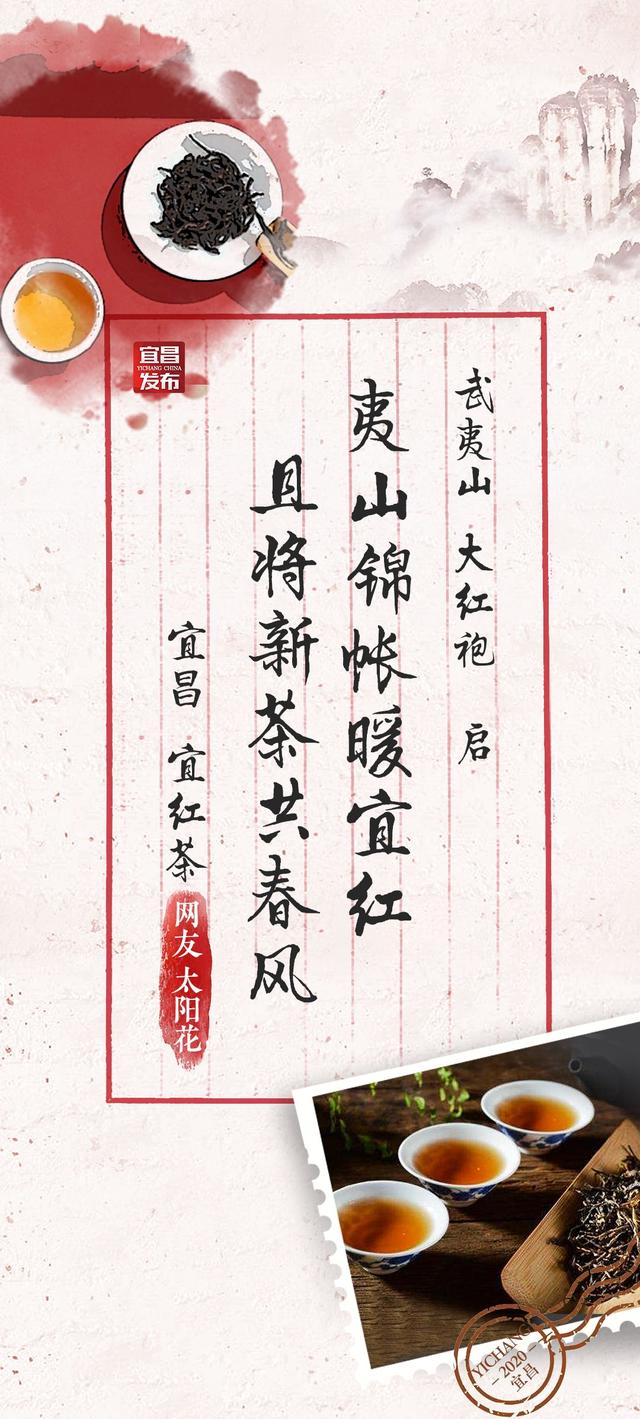 宜昌
YICHANG CHINA
发布
武夷山 大红袍 启
夷山锦帐暖宜红
且将新茶共春风
宜昌 宜红茶
网友 太阳花
YICHANG
2020
宜昌